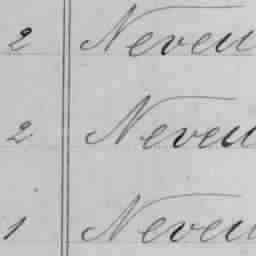 2 Neveu
2 Neveu
1 Neveu